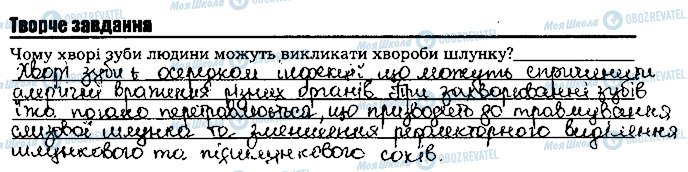 Творче завдання
Чому хворі зуби людини можуть викликати хвороби шлунку?
Хворі зуби є осередком інфекції що можуть спричинити
алергічні враження різних органів. При захворюванні зубів
їжа погано перетравлюється, що призводить до травмування
слизової шлунка та зменшення рефлекторного виділення
шлункового та підшлункового соків.